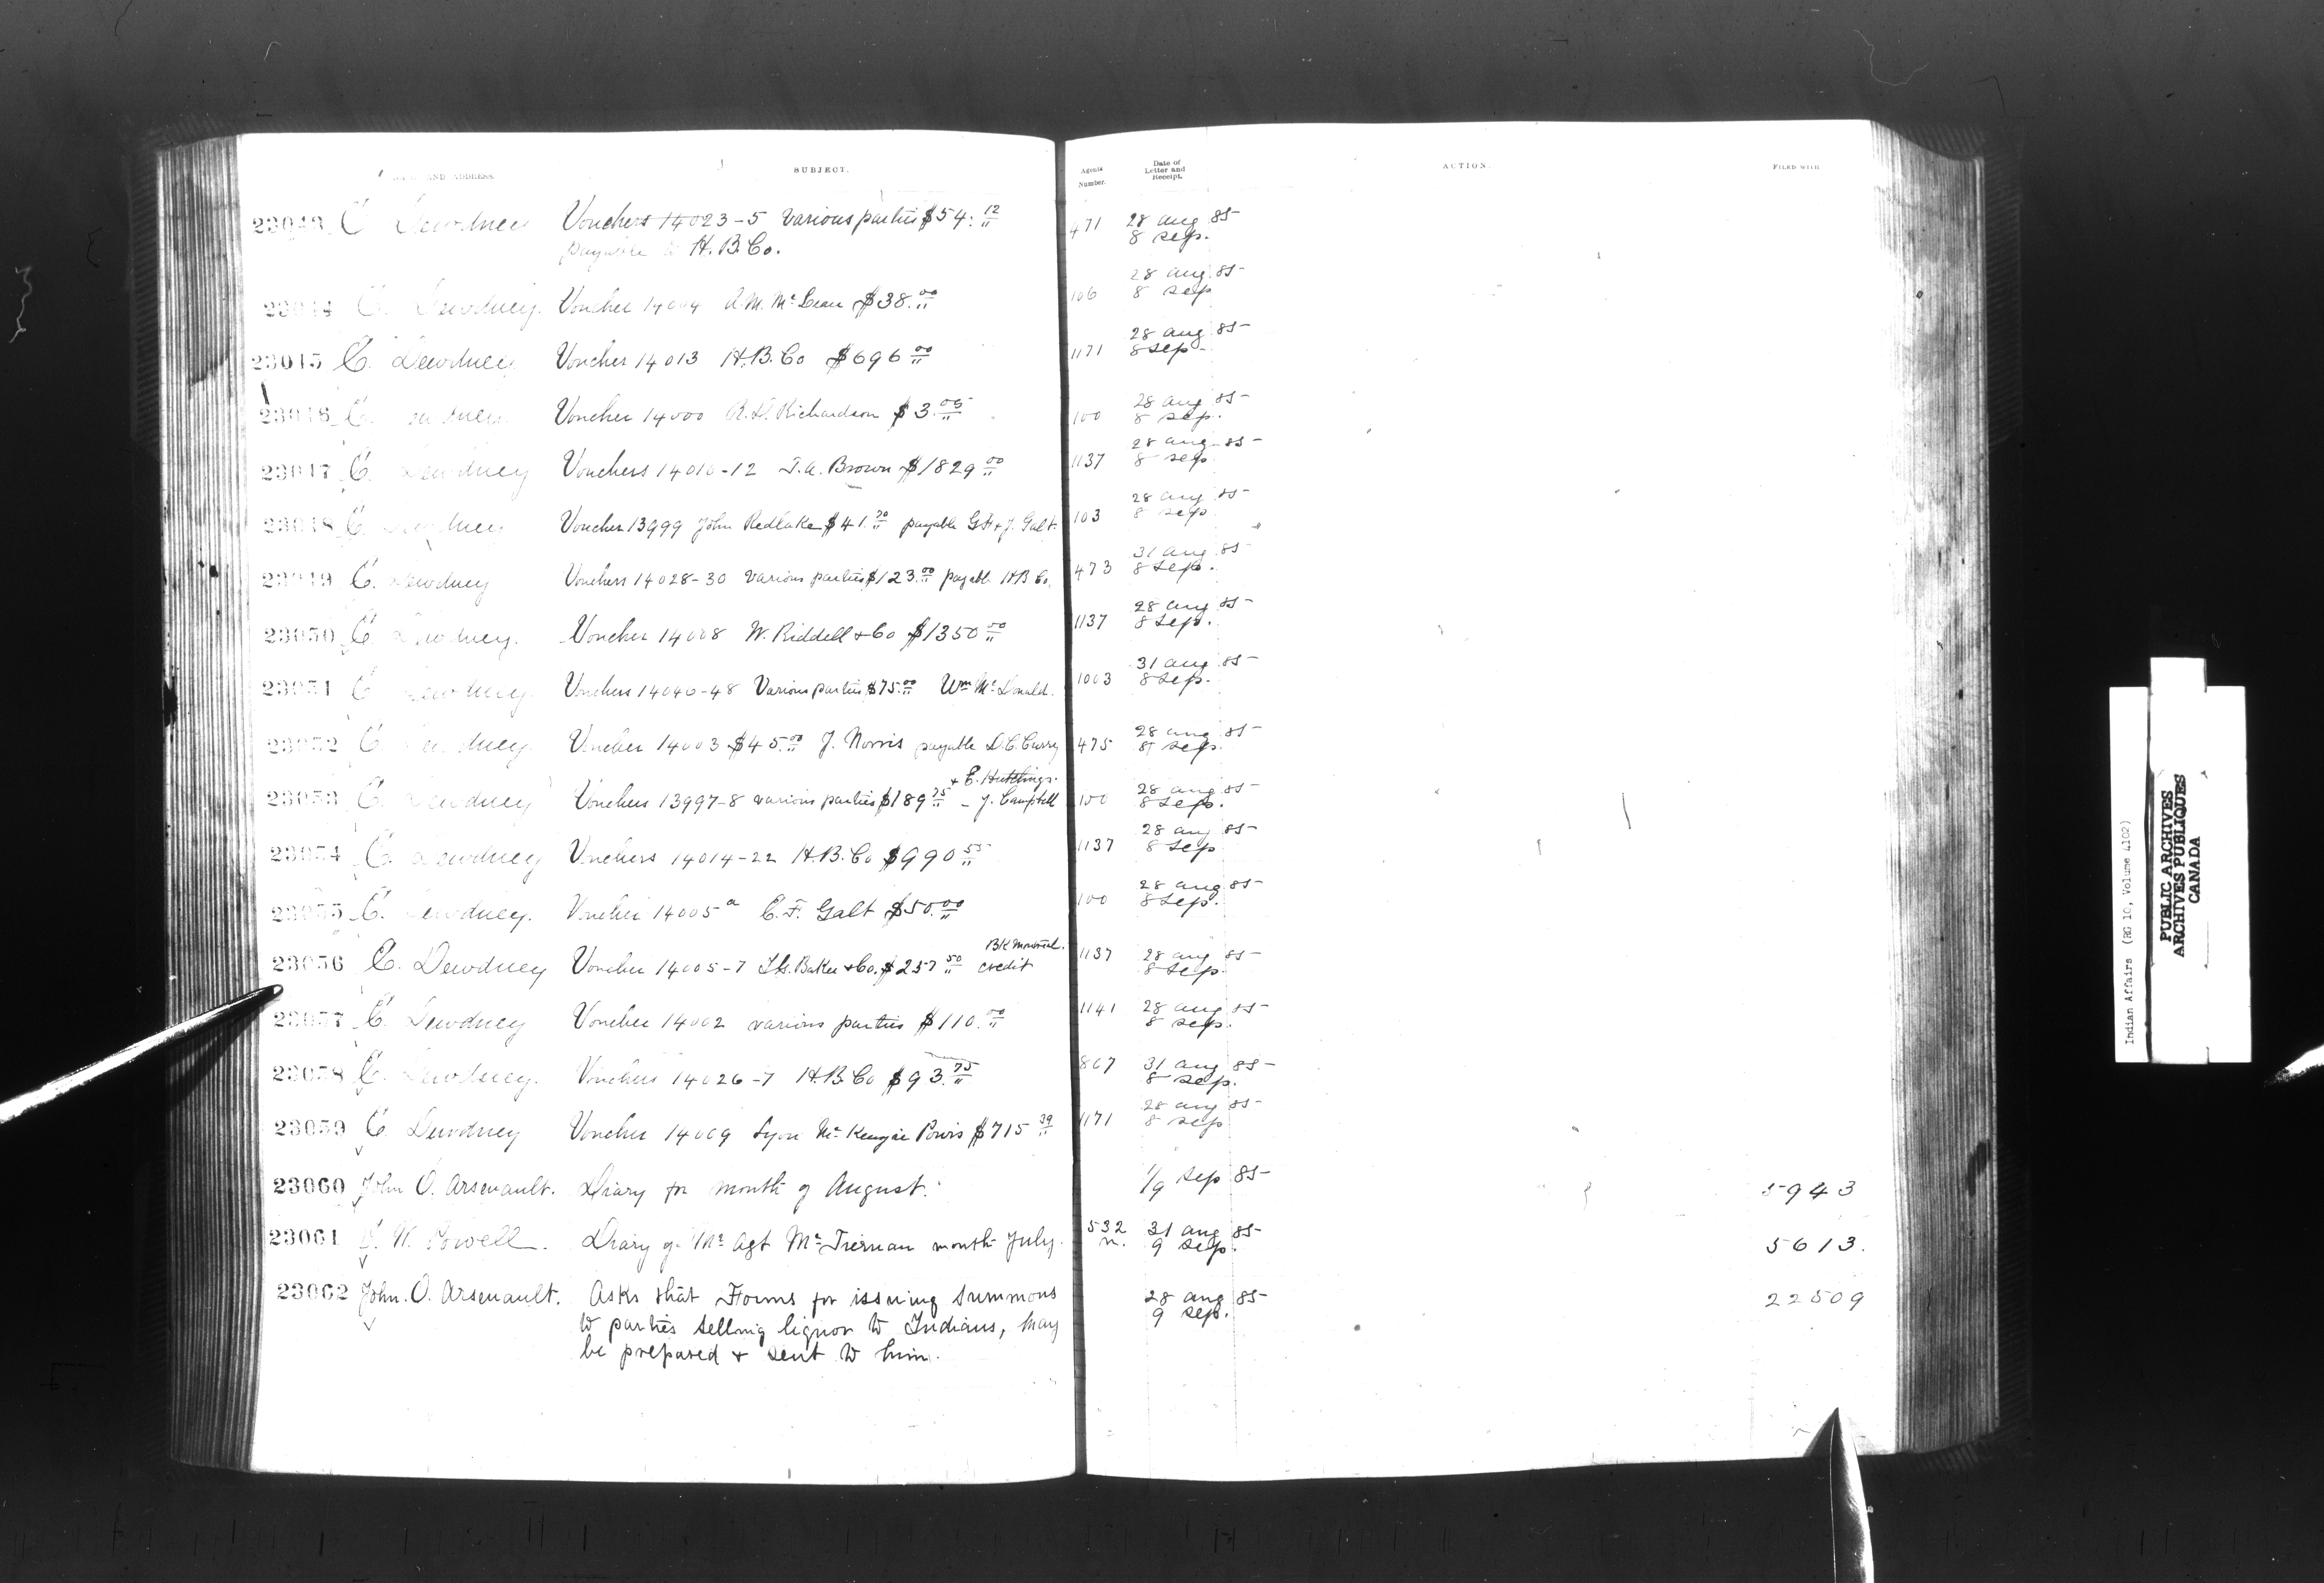 AND ADDRESS. SUBJECT. Agents Number. Date of Letter and Receipt. ACTION. FILED WITH
23043 E. Dewdney Vouchers 14023-5 Various parties $54.12 471 28 Aug 85
payable to H.B.Co. 8 Sep.
23044 E. Dewdney. Voucher 14004 A.M. McLean $38.00 106 28 Aug 85
8 Sep
23045 E. Dewdney Voucher 14013 H.B. Co $696.00 1171 28 Aug 85
8 Sep
23046 E. Dewdney Voucher 14000 R.D. Richardson $3.05 100 28 Aug 85
8 Sep.
23047 E. Dewdney Vouchers 14010-12 J.A. Brown $1829.00 1137 28 Aug 85
8 Sep
23048 E. Dewdney Voucher 13999 John Redlake $41.70 payable G.F. & J. Galt. 103 28 Aug 85
8 Sep
23049 E. Dewdney Vouchers 14028-30 Various parties $123.00 payable H.B Co. 473 31 Aug 85
8 Sep.
23050 E. Dewdney. Voucher 14008 W. Riddell & Co $1350.00 1137 28 Aug 85
8 Sep.
23051 E. Dewdney. Vouchers 14040-48 Various parties $75.00 Wm McDonald. 1003 31 Aug 85
8 Sep.
23052 E. Dewdney. Voucher 14003 $45.00 J. Norris payable D.C. Curry 475 28 Aug 85
8 Sep.
& E. Hutchings.
23053 E. Dewdney Vouchers 13997-8 various parties $189.75 - J. Campbell 100 28 Aug 85
8 Sep.
23054 E. Dewdney Vouchers 14014-22 H.B. Co $990.55 1137 28 Aug 85
8 Sep
23055 E. Dewdney. Voucher 14005a E.F. Galt $50.00 100 28 Aug 85
8 Sep.
Bk Montreal.
23056 E. Dewdney Voucher 14005-7 I.G. Baker & Co. $257.50 credit 1137 28 Aug 85
8 Sep.
23057 E. Dewdney Voucher 14002 various parties $110.00 1141 28 Aug 85
8 Sep.
23058 E. Dewdney. Vouchers 14026-7 H.B. Co $93.75 867 31 Aug 85
8 Sep.
23059 E. Dewdney Voucher 14009 Lyon McKenzie Powis $715.39 1171 28 Aug 85
8 Sep
23060 John O. Arsenault. Diary for month of August. 1/9 Sep 85 5943
23061 W. Powell. Diary of Mr Agt McTiernan month July. 532 31 Aug 85 5613.
n. 9 Sep.
23062 John. O. Arsenault. Asks that Forms for issuing summons 28 Aug 85 22509
to parties selling liquor to Indians, may 9 Sep.
be prepared & sent to him.
Indian Affairs (RG 10, Volume 4102)
PUBLIC ARCHIVES
ARCHIVES PUBLIQUES
CANADA